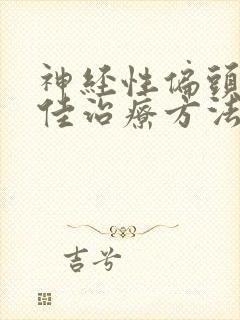 神经性偏頭
佳治療方法
吉兮